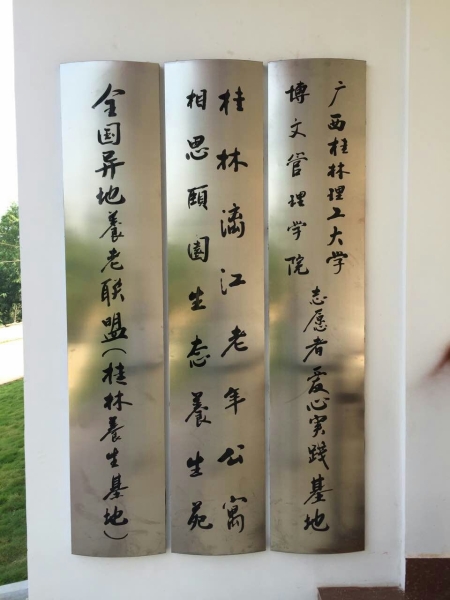 广西桂林理工大学
博文管理学院
志愿者爱心实践基地
桂林漓江老年公寓
相思颐園生态養生苑
全国异地養老联盟（桂林養生基地）